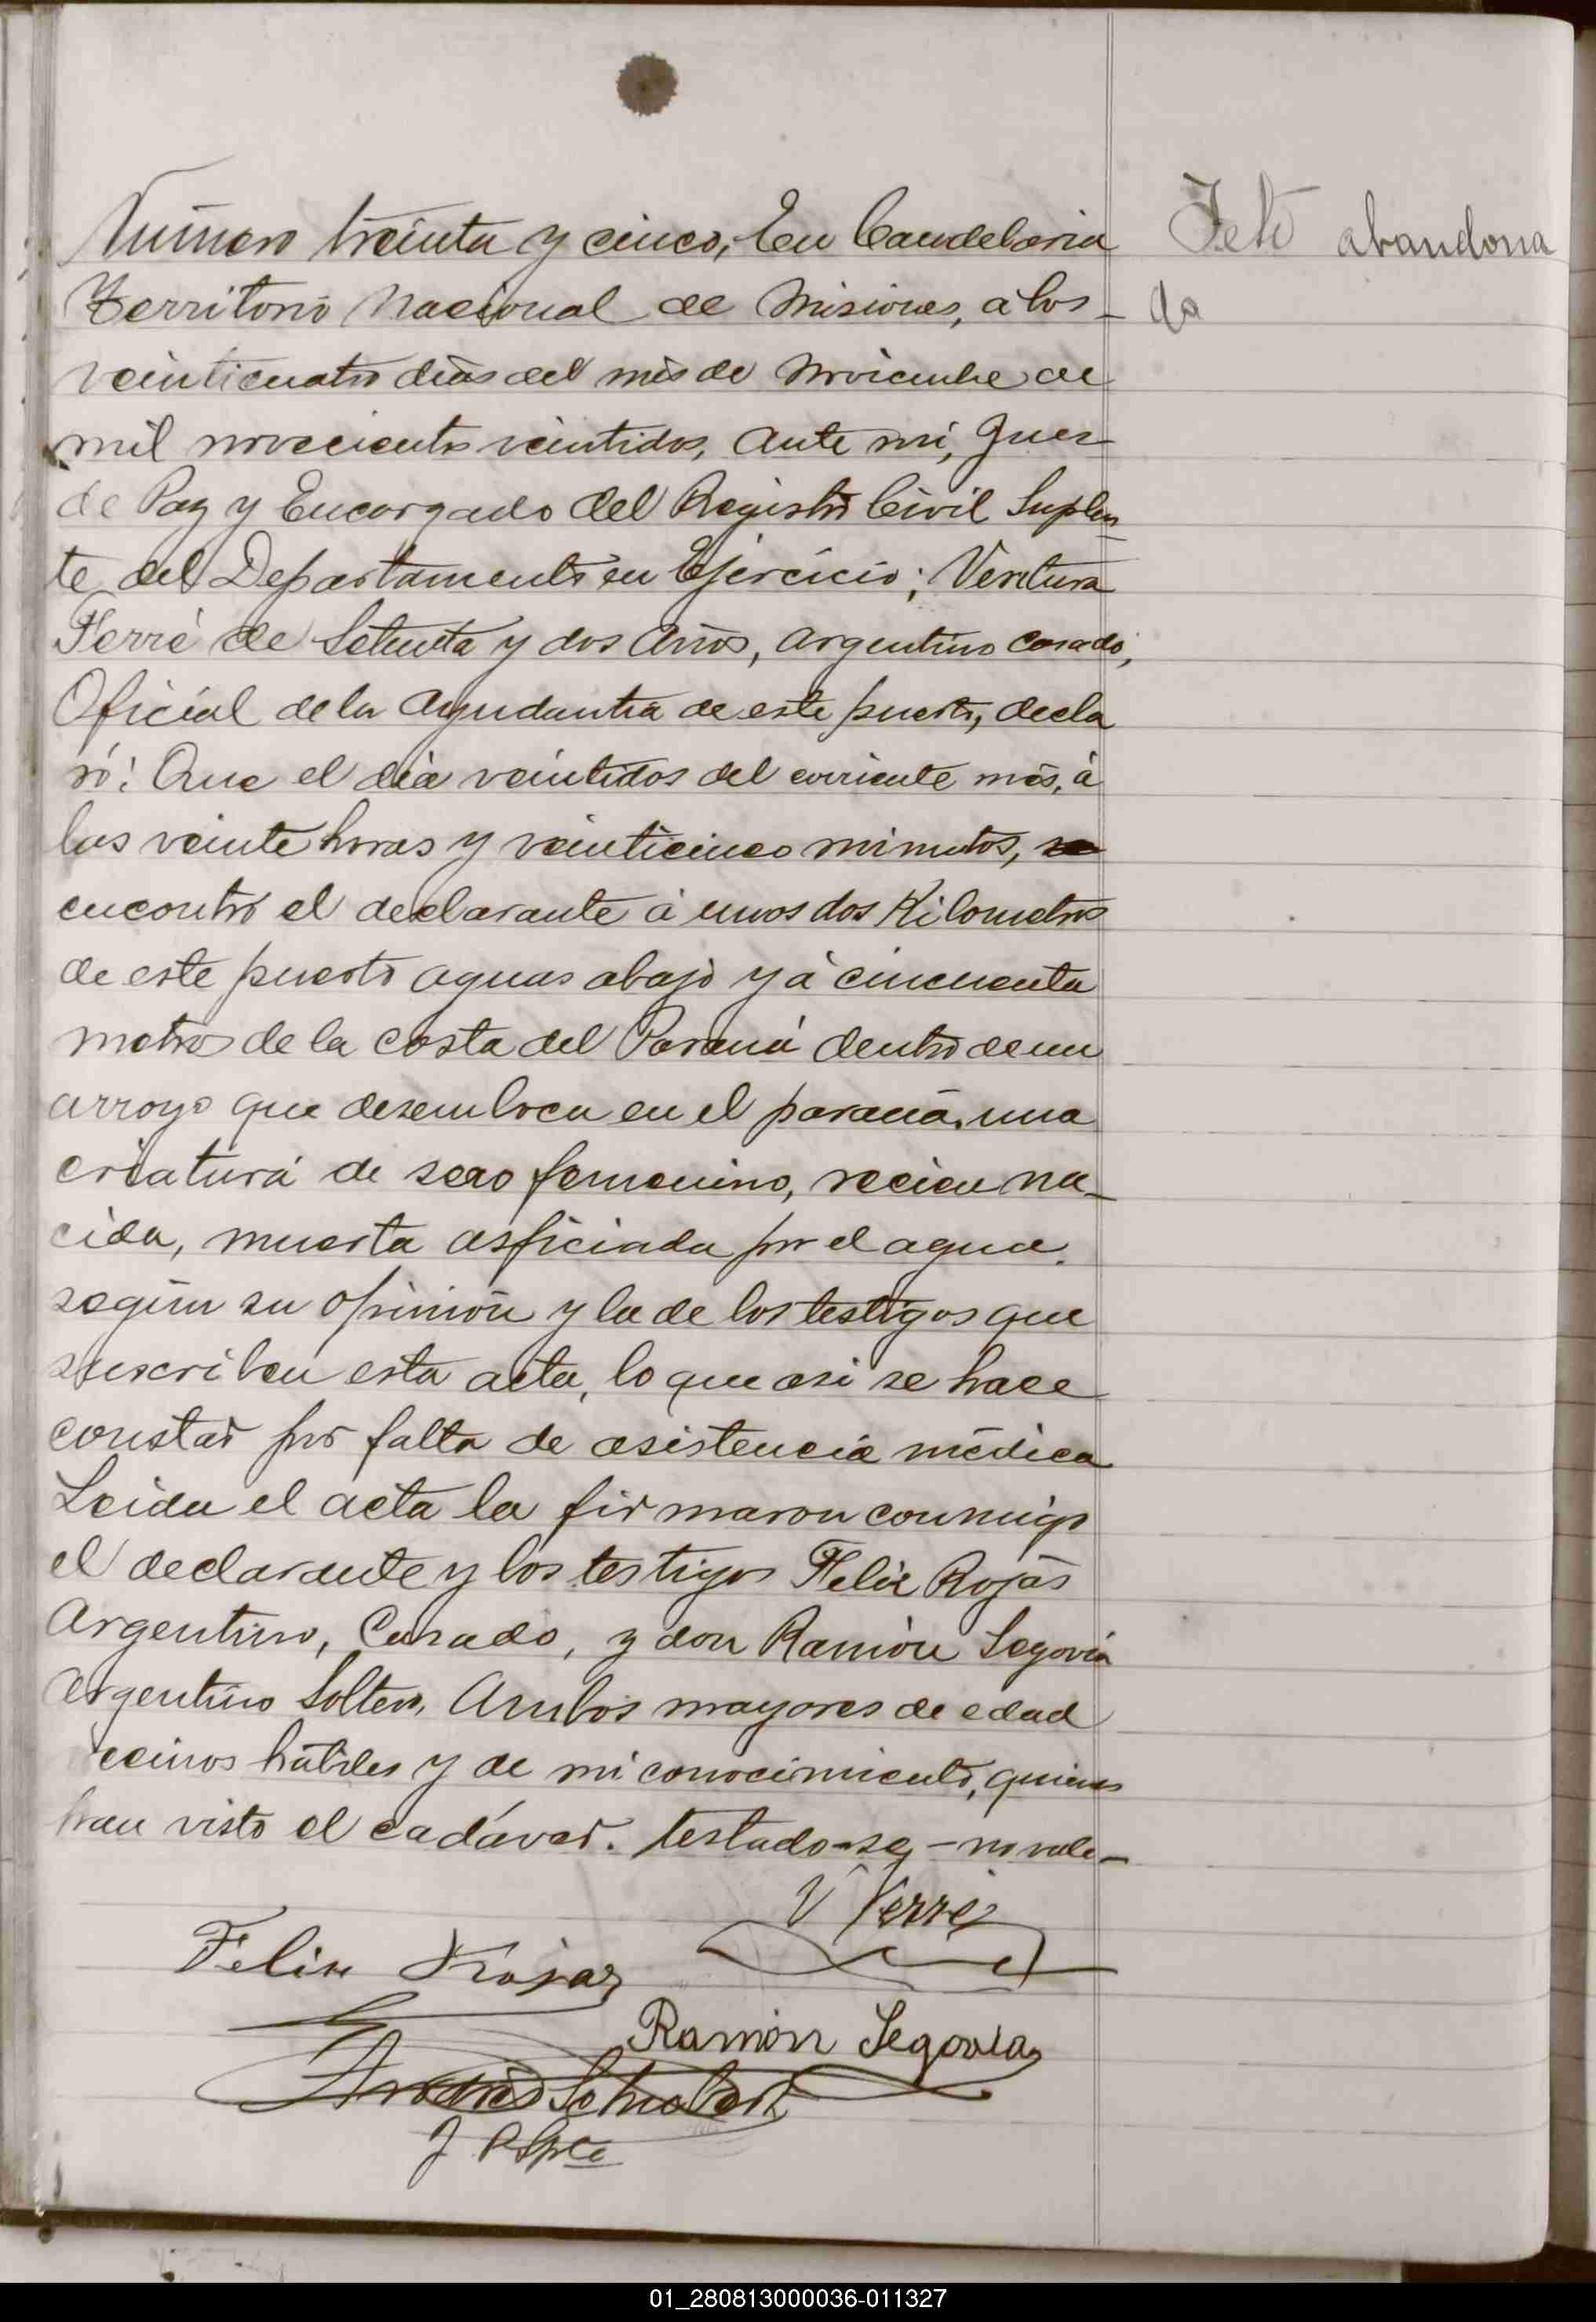 Número treinta y cinco, En Candelaria
Territorio Nacional de Misiones, á los
veinticuatro dias del mes de Noviembre de
mil novecientos veintidos, ante mi, Juez
de Paz y Encargado del Registro Civil Suplen
te del Departamento en Ejercicio; Ventura
Ferré de Setenta y dos años, argentino casado,
Oficial de la Ayudantia de este puerto, decla
ró: Que el dia veintidos del corriente més, á
las veinte horas y veinticinco minutos, se
encontró el declarante á unos dos Kilometros
de este puerto aguas abajo y á cincuenta
metros de la costa del Paraná dentro de un
arroyo que desemboca en el paraná, una
criatura de sexo femenino, recien na-
cida, muerta asficiada por el agua.
según su opinión y la de los testigos que
suscriben esta acta, lo que asi se hace
constar por falta de asistencia médica
Leida el acta la firmaron conmigo
el declarante y los testigos Felix Rojas
Argentino, Casado, y don Ramón Segovia
argentino Soltero, Ambos mayores de edad
vecinos hábiles y de mi conocimiento, quienes
han visto el cadáver. testado-se-no vale-
V Ferré
Felix Rojas
Ramón Segovia
Feto abandona
da
01_280813000036-011327